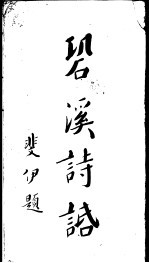 䂬溪詩話
斐伊題